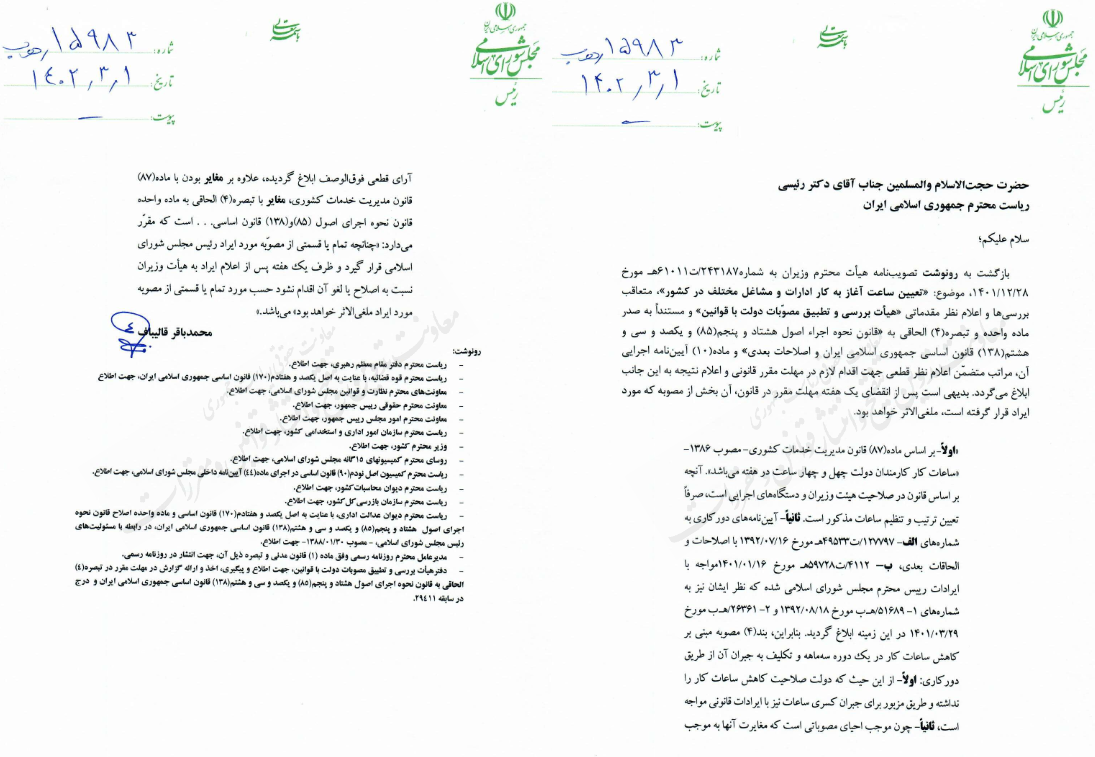 جمهوری اسلامی ایران
مجلس شورای اسلامی
رئیس
باسمه تعالی
شماره: ۱۵۹۸۳
تاریخ: ۱۴۰۲/۳/۱
پیوست: —
حضرت حجت‌الاسلام والمسلمین جناب آقای دکتر رئیسی
ریاست محترم جمهوری اسلامی ایران
سلام علیکم؛
بازگشت به رونوشت تصویب‌نامه هیأت محترم وزیران به شماره۲۴۳۱۸۷/ت۶۱۰۱۱هـ مورخ
۱۴۰۱/۱۲/۲۸، موضوع: «تعیین ساعت آغاز به کار ادارات و مشاغل مختلف در کشور»، متعاقب
بررسی‌ها و اعلام نظر مقدماتی «هیأت بررسی و تطبیق مصوّبات دولت با قوانین» و مستنداً به صدر
ماده واحده و تبصره(۴) الحاقی به «قانون نحوه اجراء اصول هشتاد و پنجم(۸۵) و یکصد و سی و
هشتم(۱۳۸) قانون اساسی جمهوری اسلامی ایران و اصلاحات بعدی» و ماده(۱۰) آیین‌نامه اجرایی
آن، مراتب متضمّن اعلام نظر قطعی جهت اقدام لازم در مهلت مقرر قانونی و اعلام نتیجه به این جانب
ابلاغ می‌گردد. بدیهی است پس از انقضای یک هفته مهلت مقرر در قانون، آن بخش از مصوبه که مورد
ایراد قرار گرفته است، ملغی‌الاثر خواهد بود.
«اولاً- بر اساس ماده(۸۷) قانون مدیریت خدمات کشوری- مصوب ۱۳۸۶-
«ساعات کار کارمندان دولت چهل و چهار ساعت در هفته می‌باشد». آنچه
بر اساس قانون در صلاحیت هیئت وزیران و دستگاه‌های اجرایی است، صرفاً
تعیین ترتیب و تنظیم ساعات مذکور است. ثانیاً- آیین‌نامه‌های دورکاری به
شماره‌های الف- ۱۳۷۷۹۷/ت۴۹۵۳۳هـ مورخ ۱۳۹۲/۰۷/۱۶ با اصلاحات و
الحاقات بعدی، ب- ۴۱۱۲/ت۵۹۷۲۸هـ مورخ ۱۴۰۱/۰۱/۱۶مواجه با
ایرادات رییس محترم مجلس شورای اسلامی شده که نظر ایشان نیز به
شماره‌های ۱- ۵۱۶۸۹/هـ‌ب مورخ ۱۳۹۲/۰۸/۱۸ و ۲- ۲۶۳۶۱/هـ‌ب مورخ
۱۴۰۱/۰۳/۲۹ در این زمینه ابلاغ گردید. بنابراین، بند(۴) مصوبه مبنی بر
کاهش ساعات کار در یک دوره سه‌ماهه و تکلیف به جبران آن از طریق
دورکاری: اولاً- از این حیث که دولت صلاحیت کاهش ساعات کار را
نداشته و طریق مزبور برای جبران کسری ساعات نیز با ایرادات قانونی مواجه
است، ثانیاً- چون موجب احیای مصوباتی است که مغایرت آنها به موجب
جمهوری اسلامی ایران
مجلس شورای اسلامی
رئیس
باسمه تعالی
شماره: ۱۵۹۸۳
تاریخ: ۱۴۰۲/۳/۱
پیوست: —
آرای قطعی فوق‌الوصف ابلاغ گردیده، علاوه بر مغایر بودن با ماده(۸۷)
قانون مدیریت خدمات کشوری، مغایر با تبصره(۴) الحاقی به ماده واحده
قانون نحوه اجرای اصول (۸۵)و(۱۳۸) قانون اساسی. . . است که مقرّر
می‌دارد: «چنانچه تمام یا قسمتی از مصوّبه مورد ایراد رئیس مجلس شورای
اسلامی قرار گیرد و ظرف یک هفته پس از اعلام ایراد به هیأت وزیران
نسبت به اصلاح یا لغو آن اقدام نشود حسب مورد تمام یا قسمتی از مصوبه
مورد ایراد ملغی‌الاثر خواهد بود» می‌باشد.»
محمدباقر قالیباف
رونوشت:
- ریاست محترم دفتر مقام معظم رهبری، جهت اطلاع.
- ریاست محترم قوه قضائیه، با عنایت به اصل یکصد و هفتادم(۱۷۰) قانون اساسی جمهوری اسلامی ایران، جهت اطلاع.
- معاونت‌های محترم نظارت و قوانین مجلس شورای اسلامی، جهت اطلاع.
- معاونت محترم حقوقی رییس جمهور، جهت اطلاع.
- معاونت محترم امور مجلس رییس جمهور، جهت اطلاع.
- ریاست محترم سازمان امور اداری و استخدامی کشور، جهت اطلاع.
- وزیر محترم کشور، جهت اطلاع.
- روسای محترم کمیسیونهای ۱۵گانه مجلس شورای اسلامی، جهت اطلاع.
- ریاست محترم کمیسیون اصل نودم(۹۰) قانون اساسی در اجرای ماده(۴۴) آیین‌نامه داخلی مجلس شورای اسلامی، جهت اطلاع.
- ریاست محترم دیوان محاسبات‌کشور، جهت اطلاع.
- ریاست محترم سازمان بازرسی کل‌کشور، جهت اطلاع.
- ریاست محترم دیوان عدالت اداری، با عنایت به اصل یکصد و هفتادم(۱۷۰) قانون اساسی و ماده واحده اصلاح قانون نحوه
اجرای اصول هشتاد و پنجم(۸۵) و یکصد و سی و هشتم(۱۳۸) قانون اساسی جمهوری اسلامی ایران، در رابطه با مسئولیت‌های
رئیس مجلس شورای اسلامی، - مصوب ۱۳۸۸/۰۱/۳۰- جهت اطلاع.
- مدیرعامل محترم روزنامه رسمی وفق ماده (۱) قانون مدنی و تبصره ذیل آن، جهت انتشار در روزنامه رسمی.
- دفترهیأت بررسی و تطبیق مصوبات دولت با قوانین، جهت اطلاع و پیگیری، اخذ و ارائه گزارش در مهلت مقرر در تبصره(۴)
الحاقی به قانون نحوه اجرای اصول هشتاد و پنجم(۸۵) و یکصد و سی و هشتم(۱۳۸) قانون اساسی جمهوری اسلامی ایران و درج
در سابقه ۲۹۴۱۱.